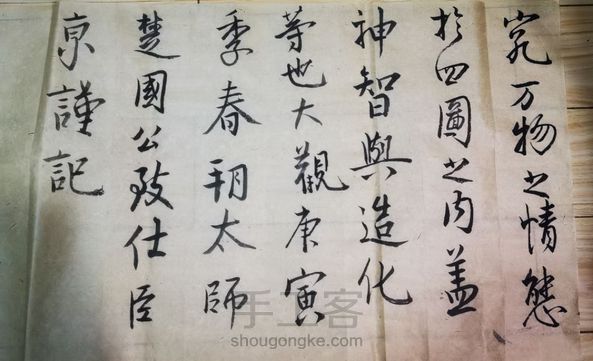 究万物之情態
於四圖之内盖
神智與造化
等也大觀庚寅
季春朔太師
楚國公致仕臣
京謹記
手工客
shougongke.com